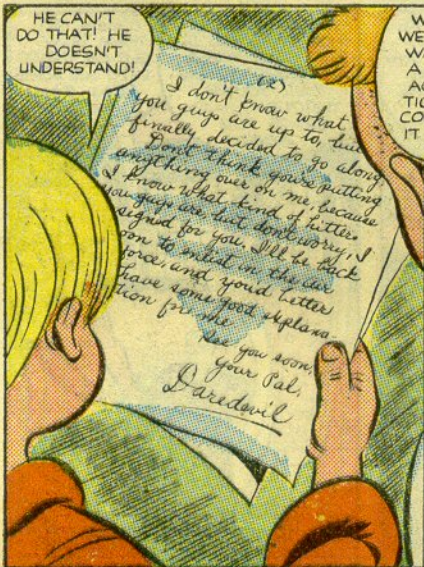 HE CAN'T
DO THAT! HE
DOESN'T
UNDERSTAND!
(2)
I don't know what
you guys are up to, but
finally decided to go along
Don't think you're putting
anything over on me, because
I know what kind of hitters
you guys are, but don't worry, I
signed for you. I'll be back
soon to enlist in the air
force and you'd better
have some good explana-
tion for me
See you soon,
Your Pal,
Daredevil
W
WE
WA
A
AC
TIC
CO
IT